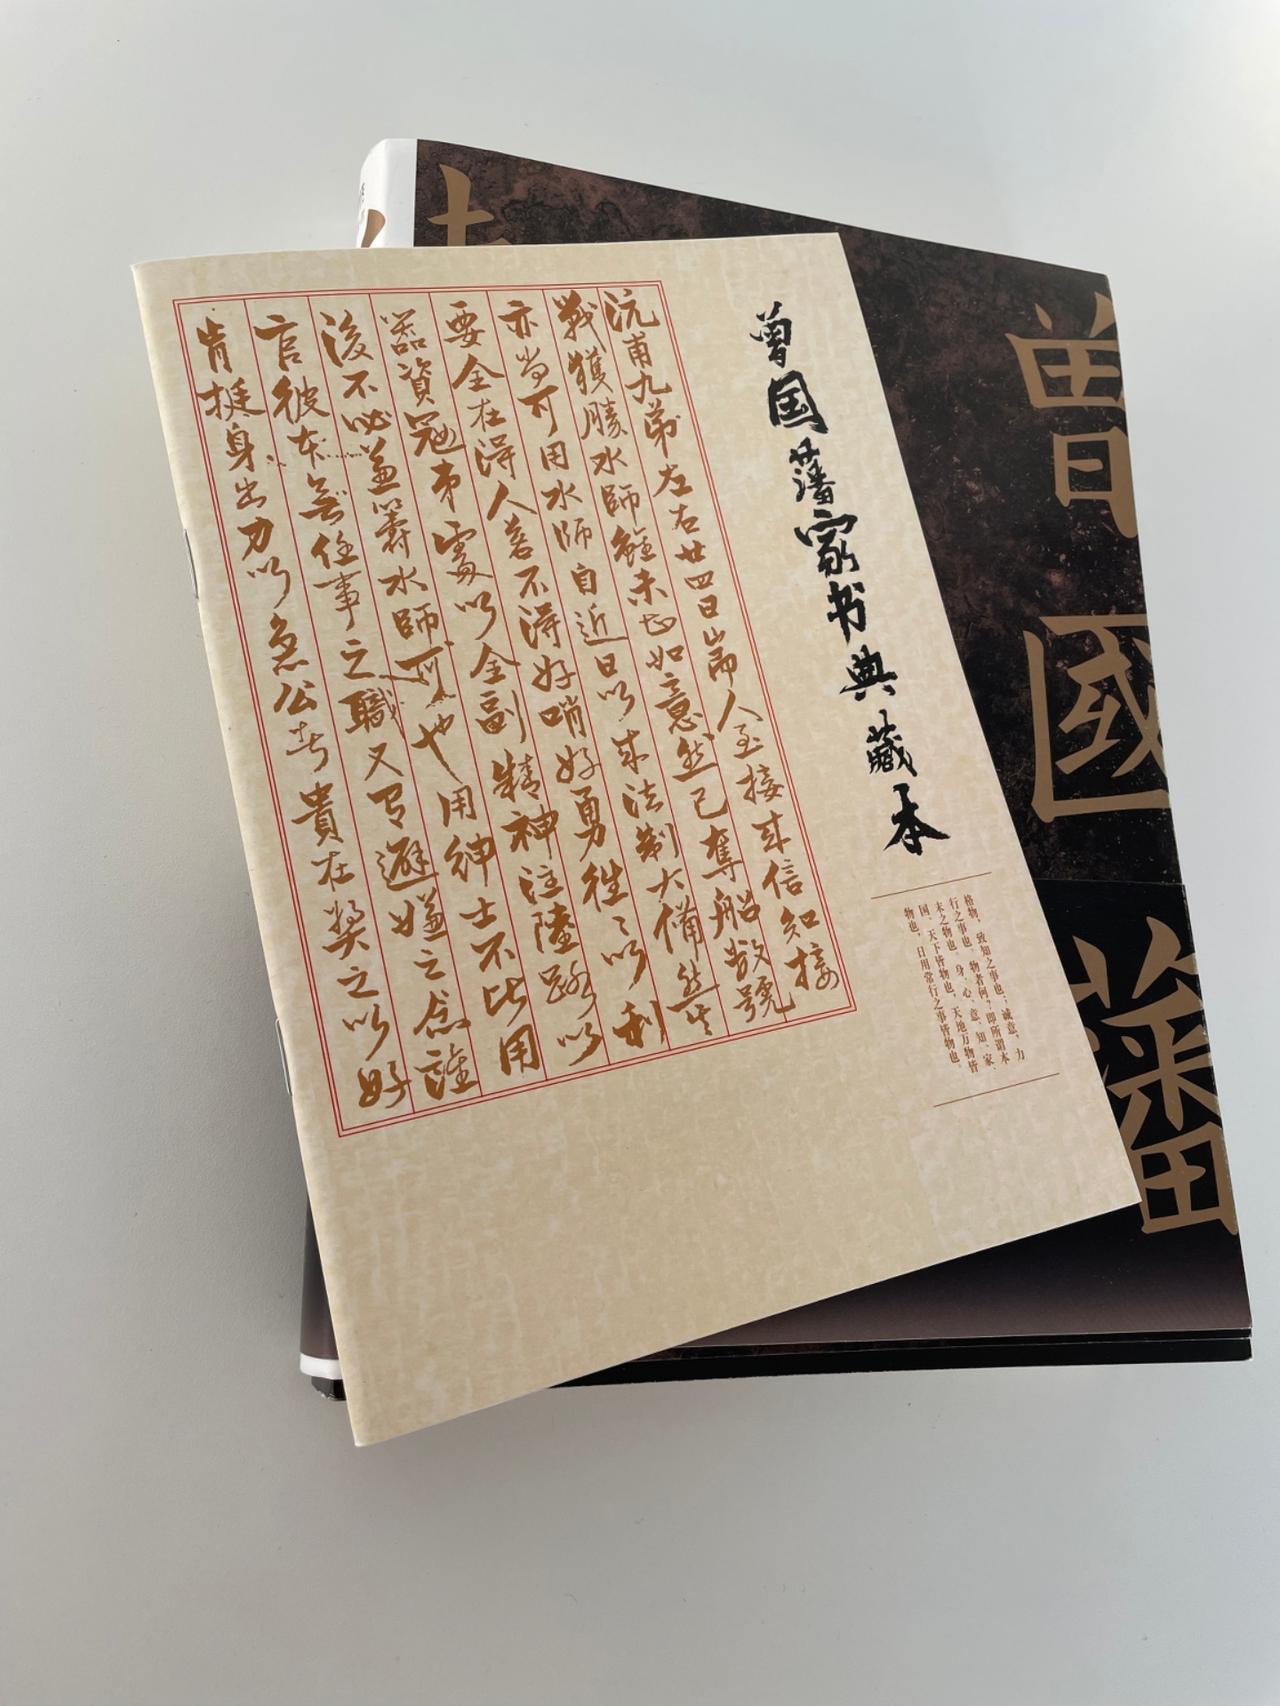 曾国藩家书典藏本
格物，致知之事也；诚意，力
行之事也。物者何？即所谓本
末之物也。身、心、意、知、家、
国、天下皆物也，天地万物皆
物也，日用常行之事皆物也。
沅甫九弟左右廿四日耑人至接来信知接
戰獲勝水師雖未甚如意然已奪船數號
亦尚可用水師自近日以来法制大備然其
要全在得人若不得好哨好勇往〻以利
器資寇弟處以全副精神注陸路以
後不必兼籌水師可也用紳士不比用
官彼本無任事之職又有避嫌之念誰
肯挺身出力以急公者貴在奬之以好
曾國藩